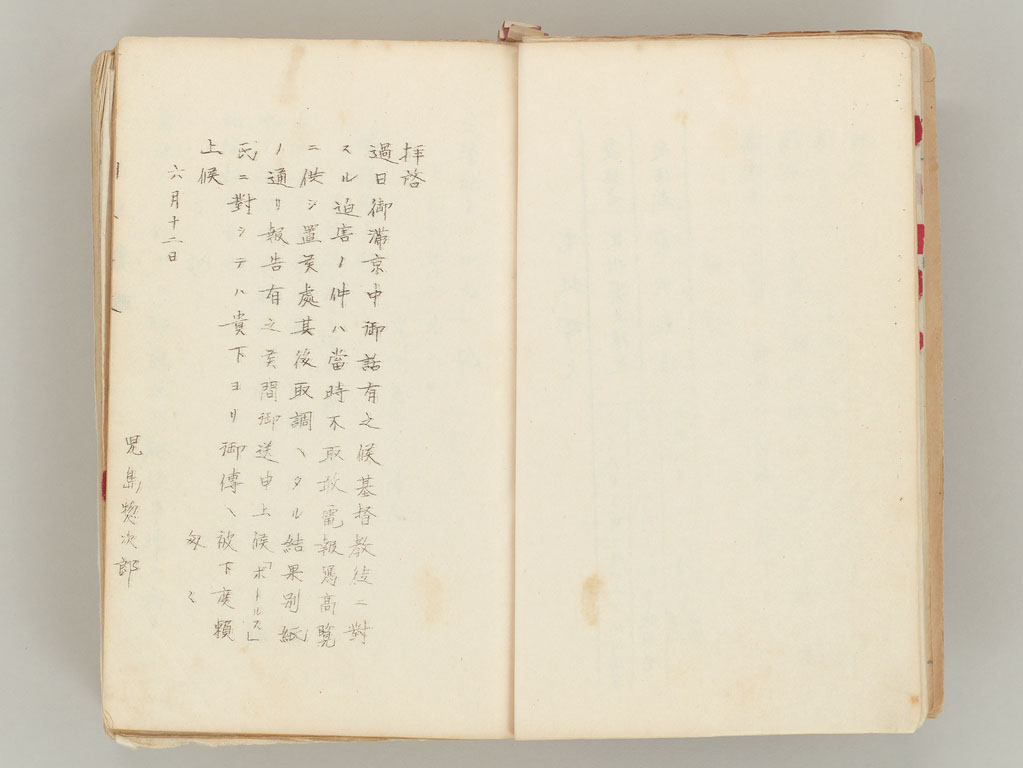 拝啓
過日御滞京中御話有之候基督教徒ニ對
スル迫害ノ件ハ當時不取敢電報寫高覧
ニ供シ置候處其後取調ヘタル結果別紙
ノ通リ報告有之候間御送申上候「ボールス」
氏ニ對シテハ貴下ヨリ御傳ヘ被下度頼
上候 匆々
六月十二日
児島惣次郎